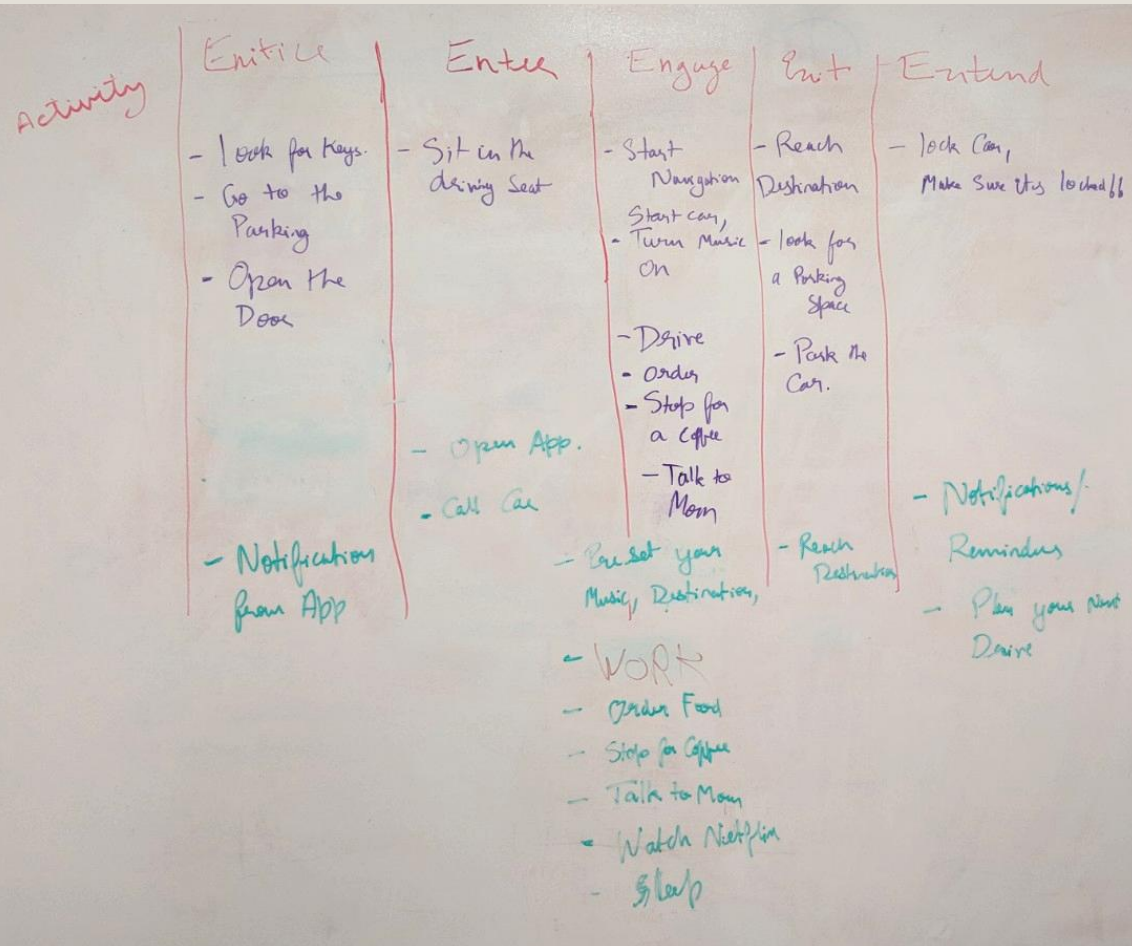 Activity
Enitice
- look for Keys.
- Go to the
Parking
- Open the
Door
- Notification
from App
Enter
- Sit in the
driving Seat
- Open App.
- Call Car
Engage
- Start
Navigation
Start car,
- Turn Music
On
- Drive
- Order
- Stop for
a Coffee
- Talk to
Mom
- Pre set your
Music, Destination,
- WORK
- Order Food
- Stop for Coffee
- Talk to Mom
- Watch Netflix
- Sleep
Exit
- Reach
Destination
- look for
a Parking
Space
- Park the
Car.
- Reach
Destination
Extend
- lock Car,
Make Sure its locked!!
- Notifications/
Reminders
- Plan your Next
Drive